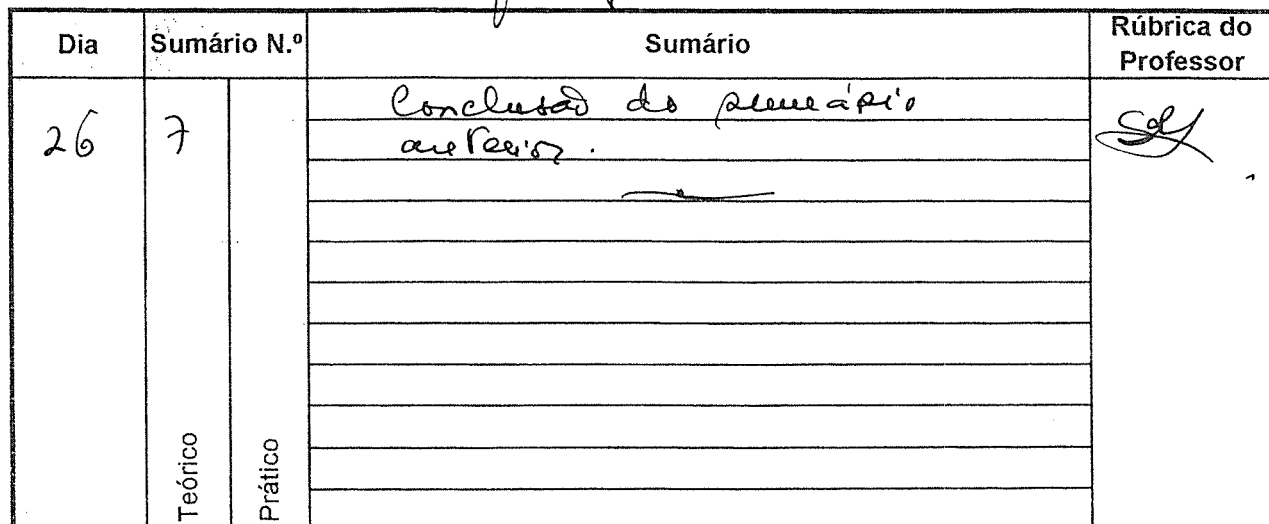 Dia Sumário N.º Sumário Rúbrica do Professor
26 7 Conclusão do sumário
anterior.
Teórico Prático